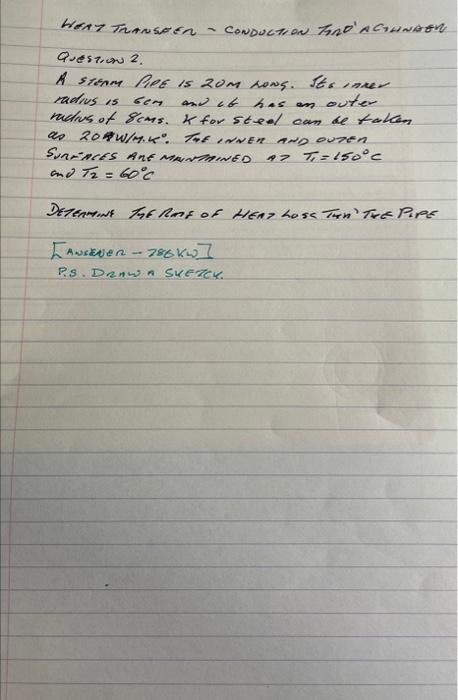 HEAT TRANSFER - CONDUCTION THRO' A CYLINDER
QUESTION 2.
A STEAM PIPE IS 20M LONG. Its inner
radius is 6cm and it has an outer
radius of 8cms. K for steel can be taken
as 20 W/M.K°. THE INNER AND OUTER
SURFACES ARE MAINTAINED AT T1 = 150°C
and T2 = 60°C
DETERMINE THE RATE OF HEAT LOSS THRU' THE PIPE
[ANSWER - 786KW]
P.S. DRAW A SKETCH.